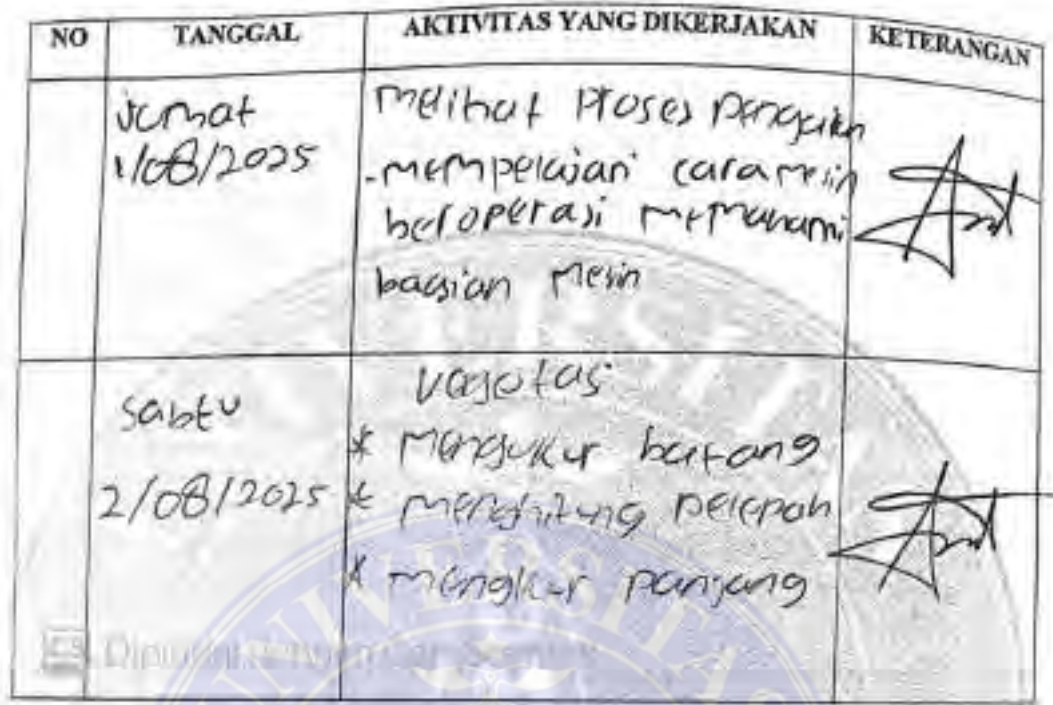 NO TANGGAL AKTIVITAS YANG DIKERJAKAN KETERANGAN
Jumat
1/08/2025
melihat Proses
-mempelajari cara mesin
beroperasi memahami
bagian mesin
Sabtu
2/08/2025
* Mengukur batang
* menghitung pelepah
* mengkur panjang
UNIVERSITA